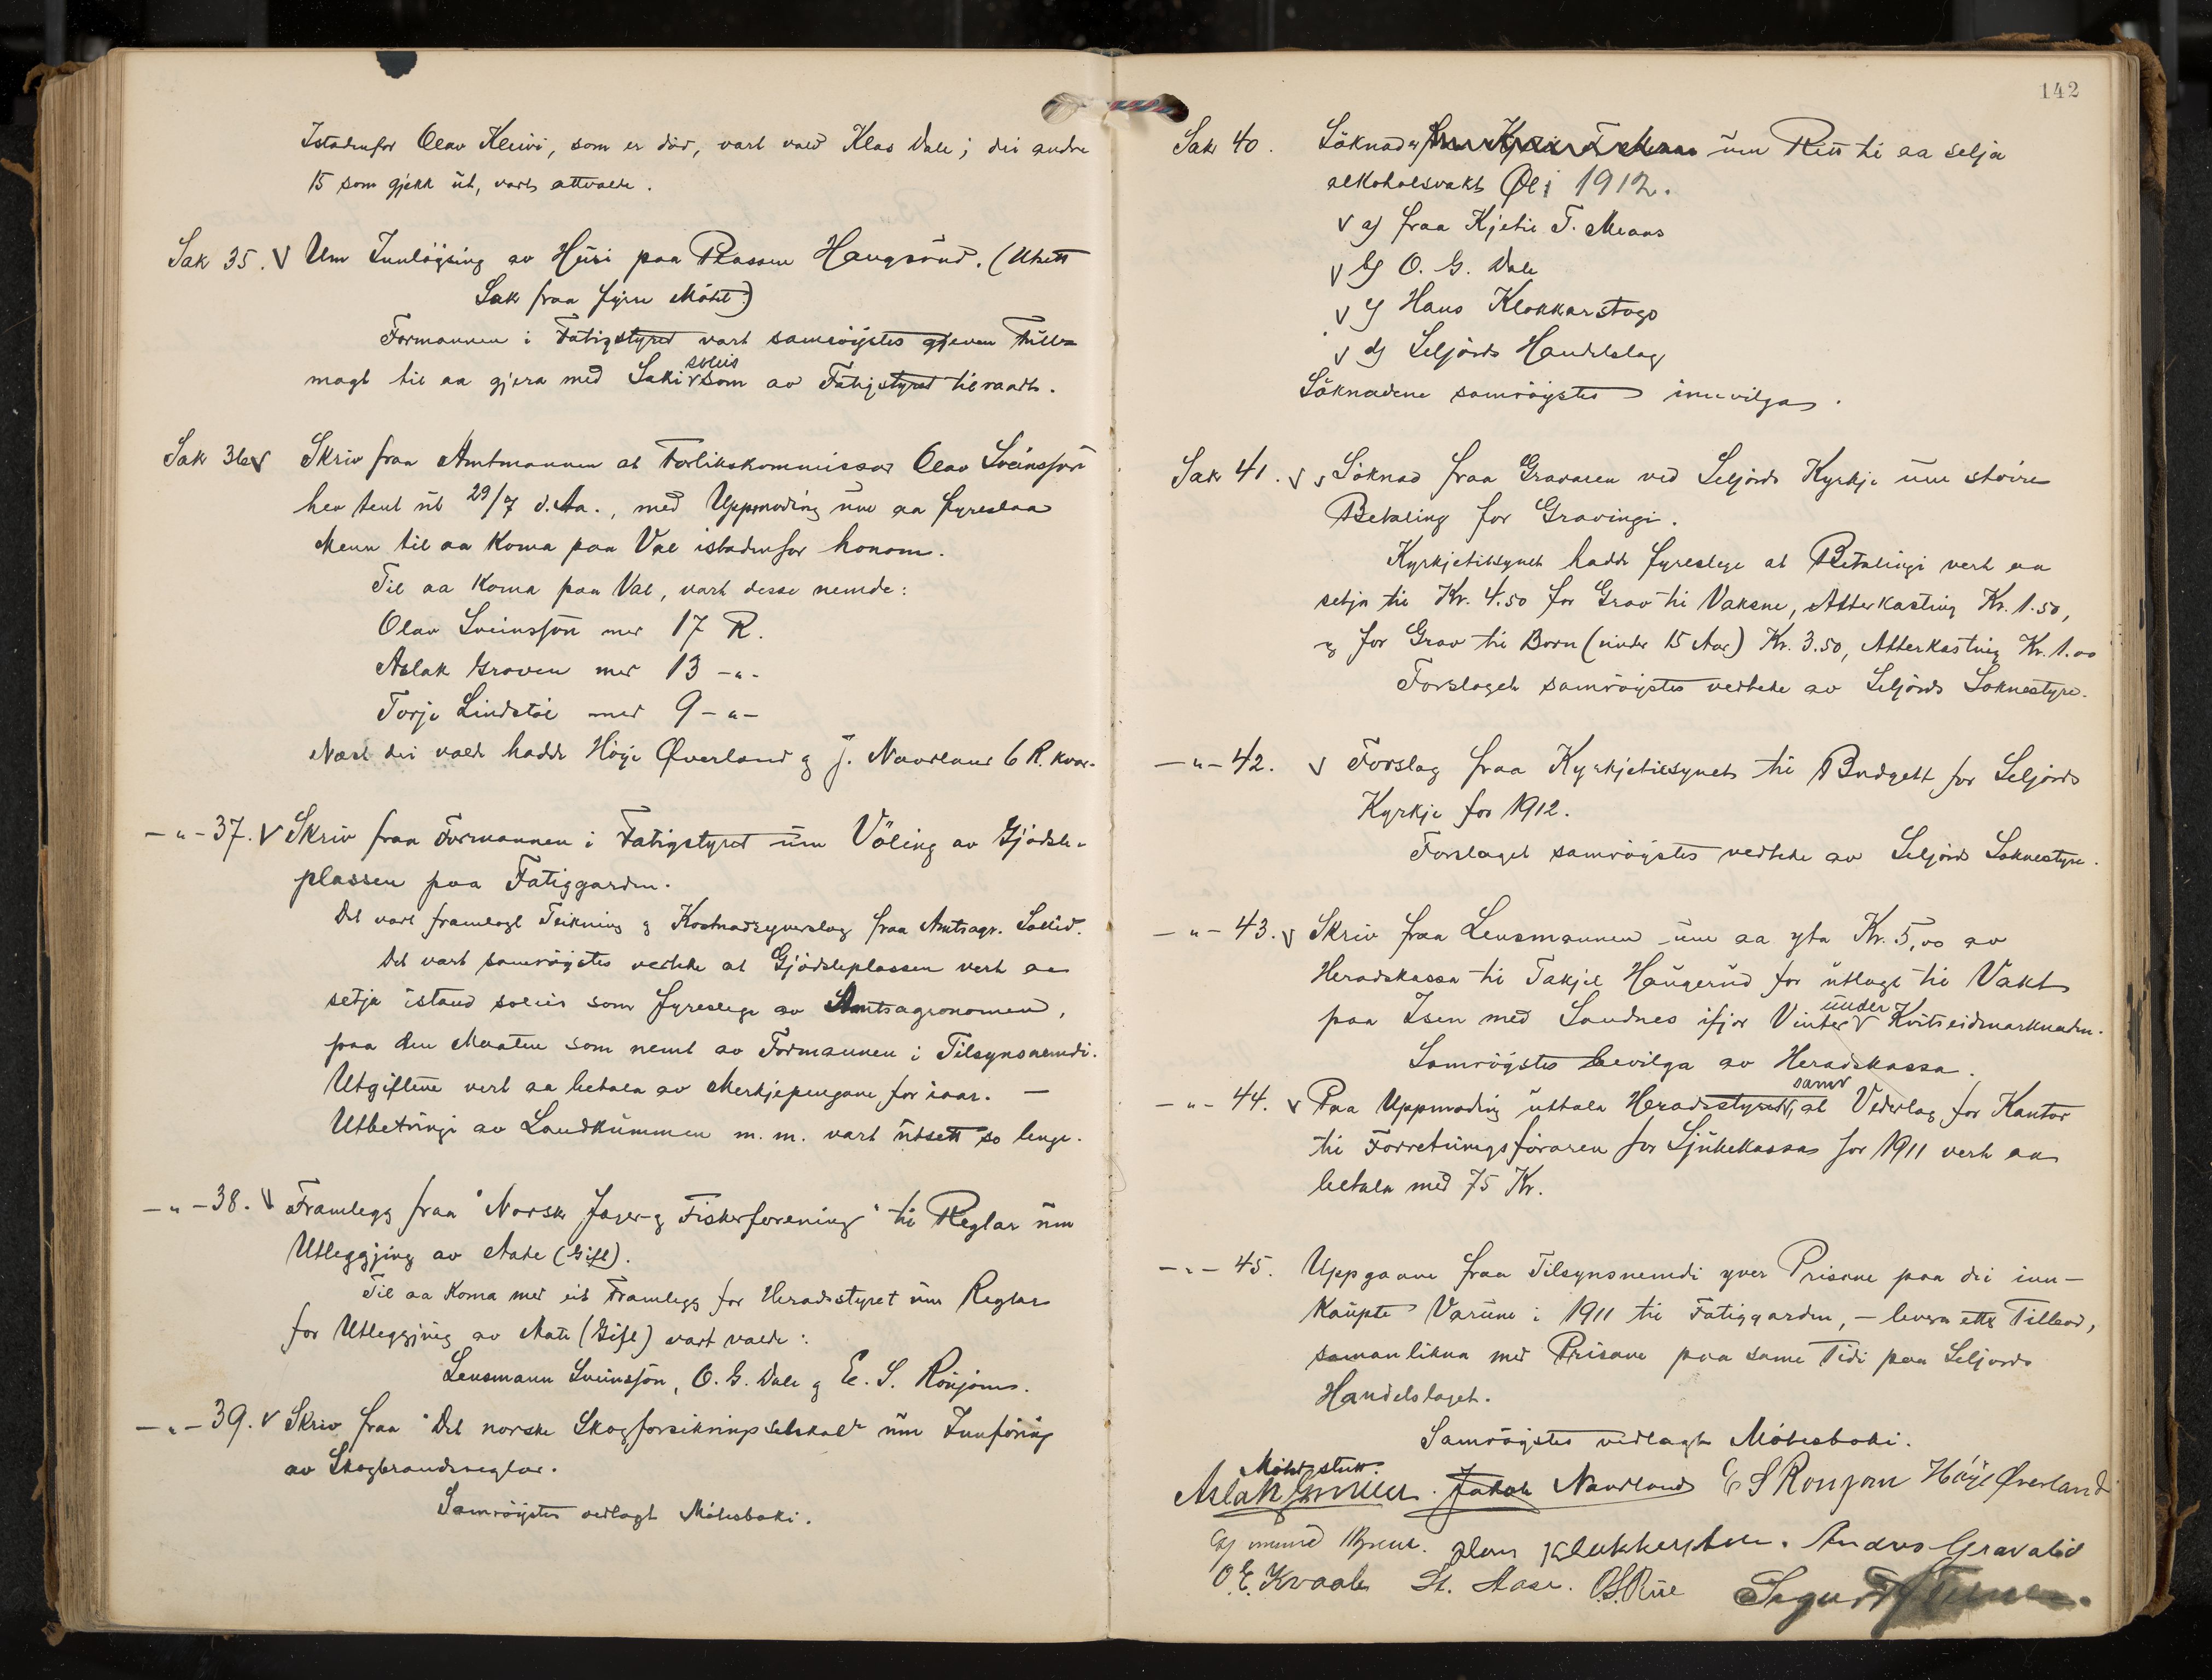 Istadenfor Olav Kleivi, som er död, vart vald Klas Dale; dei andre
15 som gjekk ut, vart attvalde.
Sak 35. V Um Innlögsing av Husi paa Plassen Haugsrud. (Utsett
Sak fraa fyrre Möte)
Formannen i Fatigstyret vart samröystes gjeven Full=
magt til aa gjera med Saki soleis som av Fatigstyret tilraadt.
Sak 36 V Skriv fraa Amtmannen at Forlikskommissær Olav Sveinsson
hev tent ut 29/7 d.Aa., med Uppmoding um aa fyreslaa
Menn til aa koma paa Val istadenfor honom.
Til aa koma paa Val, vart desse nemde:
Olav Sveinsson med 17 R.
Aslak Groven med 13 -"-
Torje Lindstöl med 9 -"-
Næst dei valde hadde Höye Øverland og J. Naurland 6 R. kvar.
-"- 37. V Skriv fraa Formannen i Fatigstyret um Völing av Gjödsle-
plassen paa Fatiggarden.
Det vart framlagt Teikning og Kostnadsyverslag fraa Amtsagr. Sollid.
Det vart samröystes vedteke at Gjödsleplassen vert aa
setja istand soleis som fyreslege av Amtsagronomen,
paa den Maaten som nemt av Formannen i Tilsynsnemdi.
Utgiftene vert aa betala av Merkjepengane for iaar. —
Utbetringi av Landkummen m.m. vart utsett so lenge.
-"- 38. V Framlegg fraa "Norsk Jæger- og Fiskerforening" til Reglar um
Utleggjing av Aate (Gift).
Til aa koma med eit Framlegg for Heradsstyret um Reglar
for Utleggjing av Aate (Gift) vart valde:
Lensmann Sveinsson, O. G. Dale og E. S. Rönjom.
-"- 39. V Skriv fraa "Det norske Skogforsikringsselskab" um Innföring
av Skogbrandreglar.
Samröystes vedlagt Möteboki.
142
Sak 40. Söknader um Rett til aa selja
alkoholsvakt Øl i 1912.
V a) fraa Kjetil T. Meaas
V b) O. G. Dale
V c) Hans Klokkarstogo
V d) Seljords Handelslag
Söknadene samröystes innvilga.
Sak 41. V Söknad fraa Gravaren ved Seljords Kyrkje um större
Betaling for Gravingi.
Kyrkjetilsynet hadde fyreslege at Betalingi vert aa
setja til Kr. 4.50 for Grav til Vaksne, Atterkasting Kr. 1.50,
og for Grav til Born (under 15 Aar) Kr. 3.50, Atterkasting Kr. 1.00
Forslaget samröystes vedteke av Seljords Soknestyre.
-"- 42. V Forslag fraa Kyrkjetilsynet til Budgett for Seljords
Kyrkje for 1912.
Forslaget samröystes vedteke av Seljords Soknestyre.
-"- 43. V Skriv fraa Lensmannen um aa yta Kr. 5,00 av
Heradskassa til Takjel Haugerud for utlagt til Vakt
paa Isen med Sandnes ifjor Vinter under Kvitseidmarknaden.
Samröystes bevilga av Heradskassa.
-"- 44. V Paa Uppmoding uttala Heradsstyret samr at Vederlag for Kontor
til Forretningsföraren for Sjukekassa for 1911 vert aa
betala med 75 Kr.
-"- 45. Uppgaave fraa Tilsynsnemdi yver Prisane paa dei inn-
kaupte Varune i 1911 til Fatiggarden, — levera etter Tilbod,
samanlikna med Prisane paa same Tidi paa Seljords
Handelslaget.
Samröystes vedlagt Möteboki.
Möte slutt.
Aslak Groven. Jakob Naurland E S Ronjom Höye Øverland
Hans Klokkerstoe. Andres Gravalid
O. E. Kvaale St. Aase. O.S. Rue Sigurd